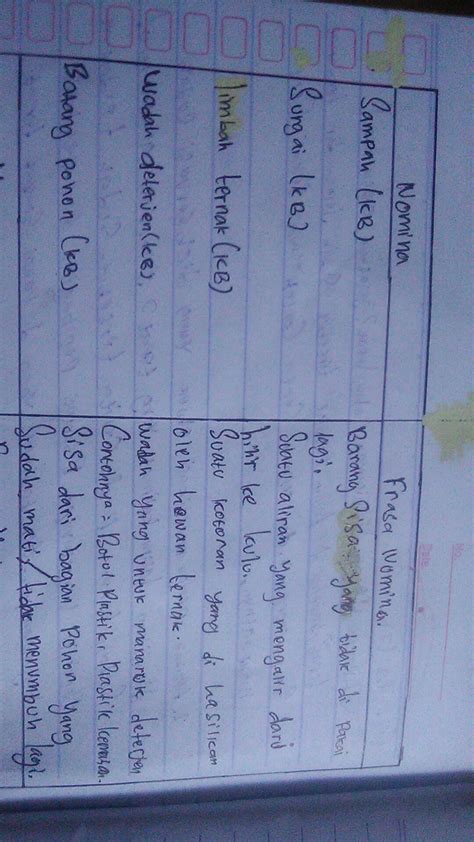 Nomina
Frasa Nomina.
Sampah (KB)
Barang Sisa yang tidak di Pakai
lagi.
Sungai (KB)
Suatu aliran yang mengalir dari
hilir ke hulu.
limbah ternak (KB)
Suatu kotoran yang di hasilkan
oleh hewan ternak.
Wadah deterjen (KB)
wadah yang untuk manarok deterjen
Contohnya = Botol Plastik, Plastik kemasan.
Batang pohon (KB)
Sisa dari bagian Pohon yang
Sudah mati / tidak menumbuh lagi.